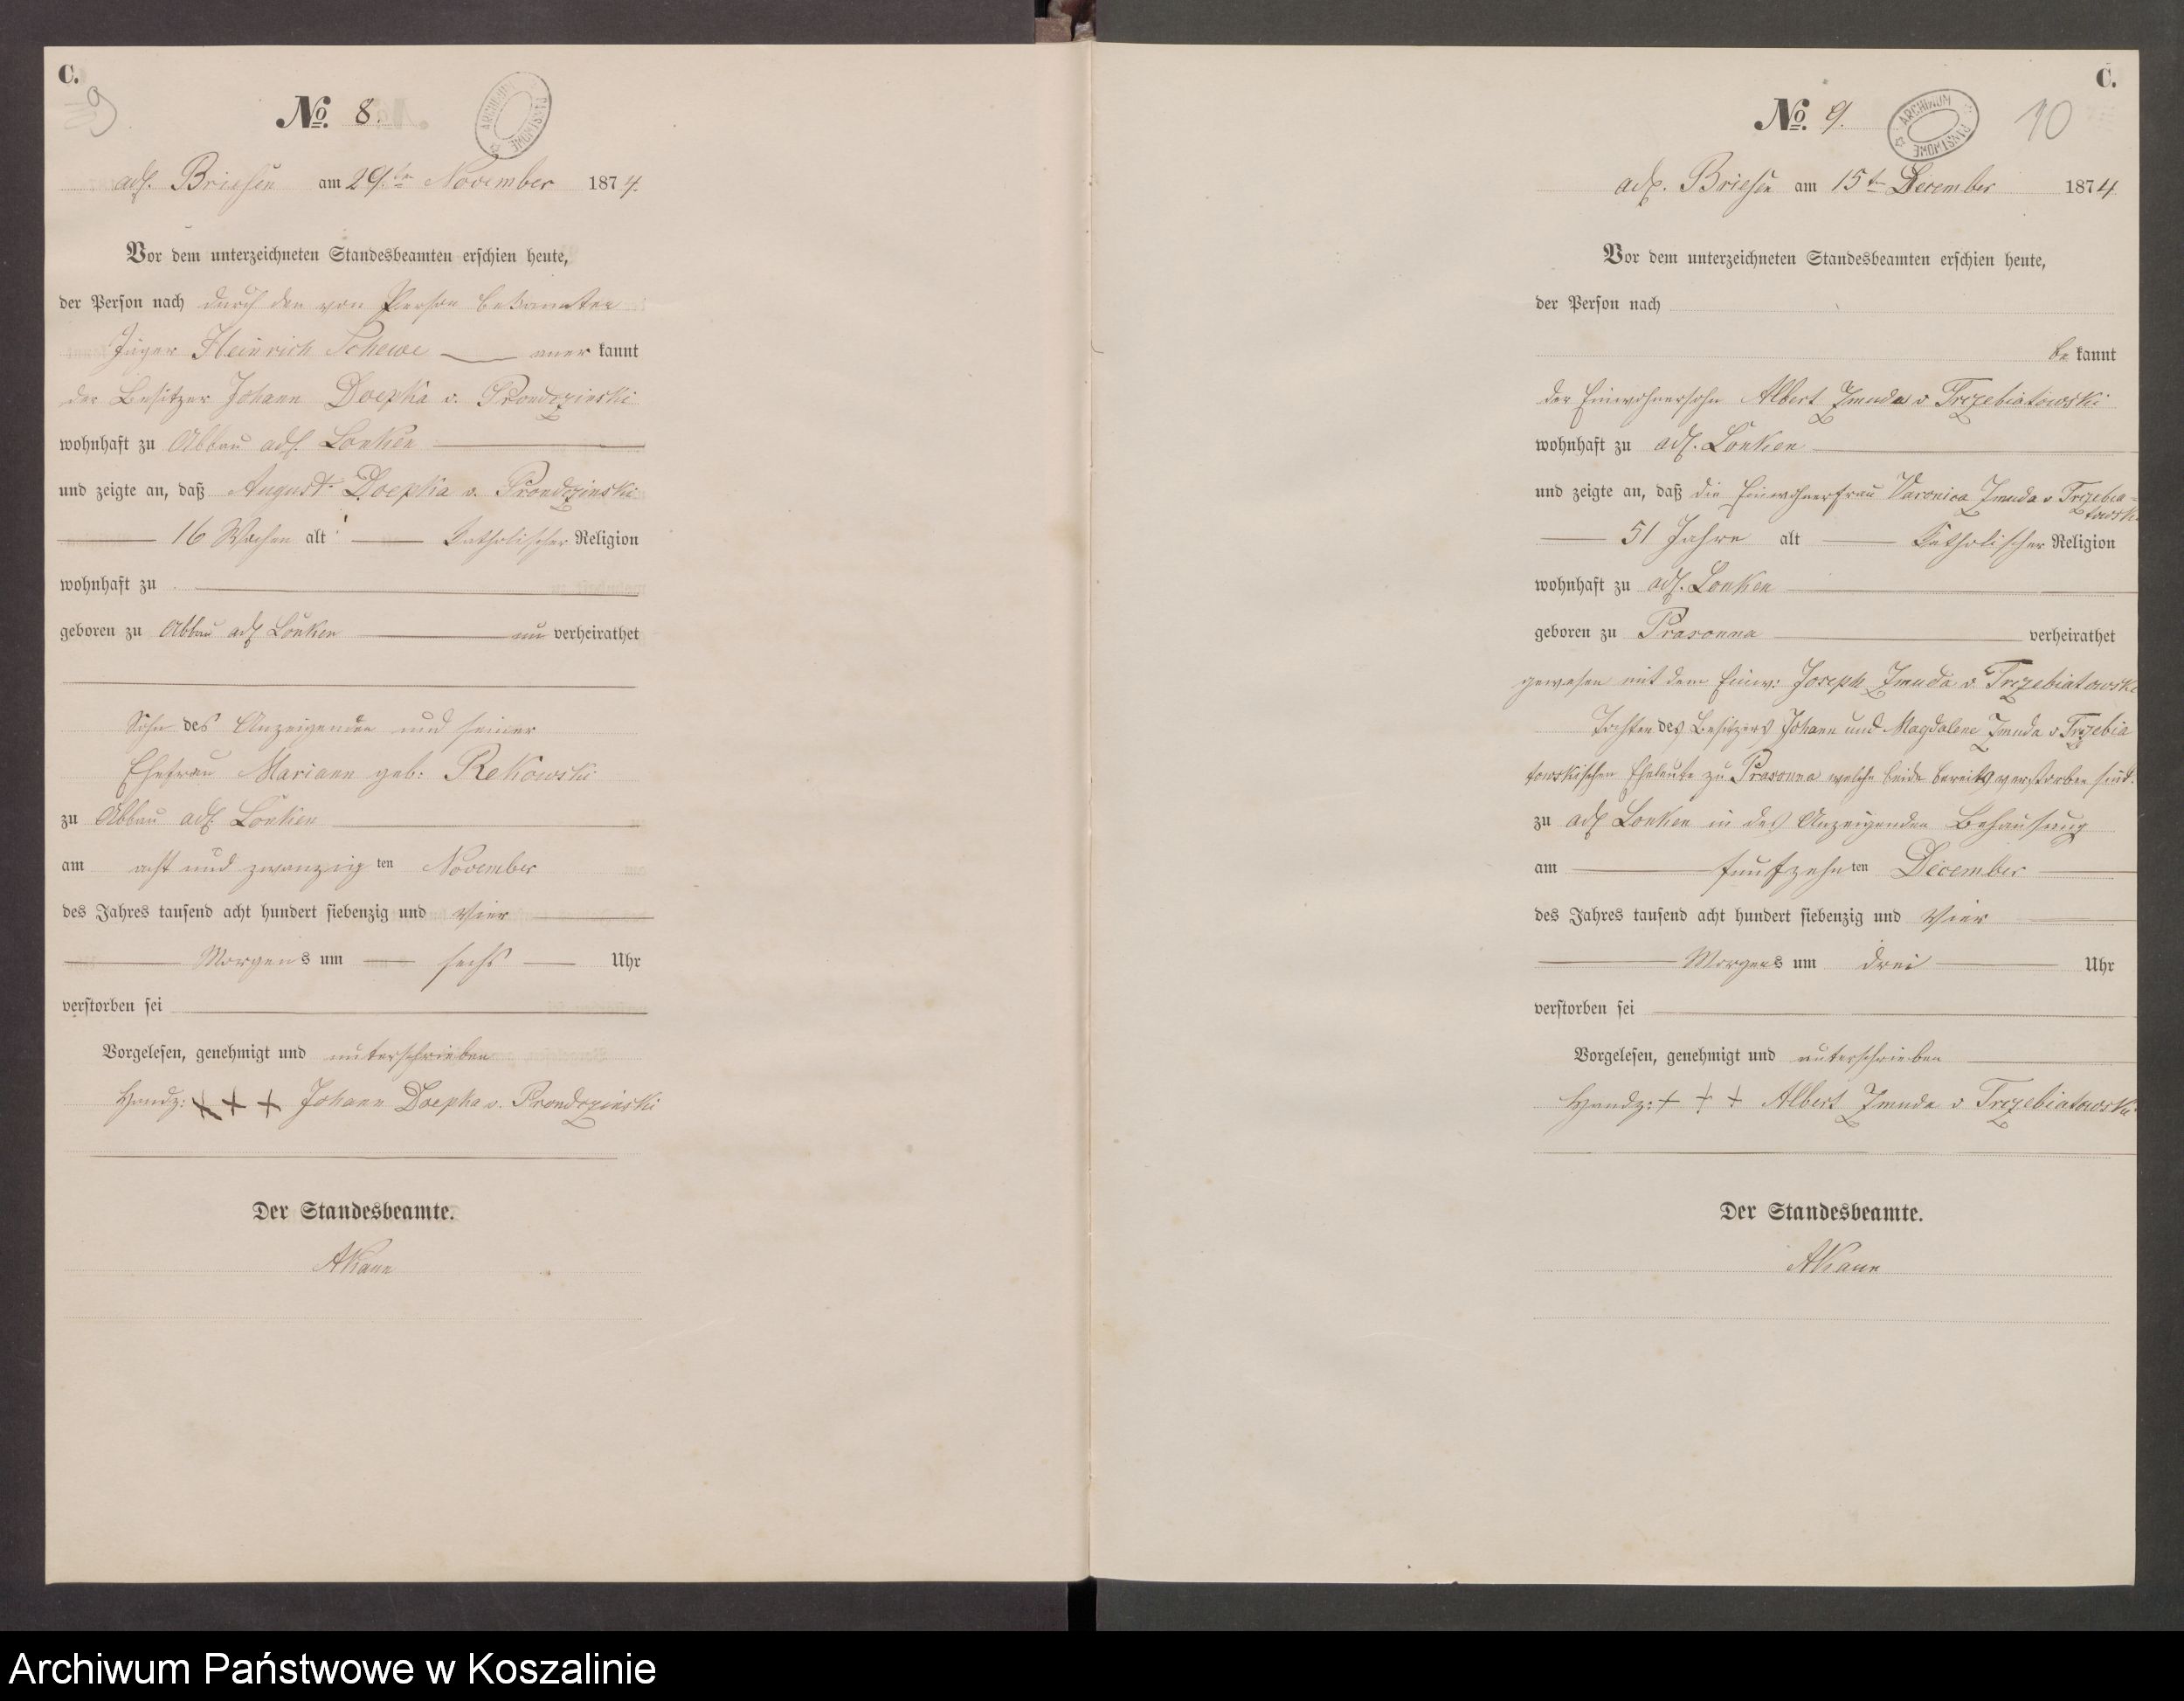 C.
9
No. 8.
ARCHIWUM PAŃSTWOWE
adl. Briesen am 29ten November 1874.
Vor dem unterzeichneten Standesbeamten erschien heute,
der Person nach durch den von Person bekannten
Jäger Heinrich Schewe aner kannt
der Besitzer Johann Doepka v. Prondzinski
wohnhaft zu Abbau adl. Lonken
und zeigte an, daß August Doepka v. Prondzinski
16 Wochen alt katholischer Religion
wohnhaft zu
geboren zu Abbau adl Lonken un verheirathet
Sohn des Anzeigenden und seiner
Ehefrau Mariann geb: Rekowski
zu Abbau adl. Lonken
am acht und zwanzig ten November
des Jahres tausend acht hundert siebenzig und vier
Morgens um sechs Uhr
verstorben sei
Vorgelesen, genehmigt und unterschrieben
Handz: + + + Johann Doepka v. Prondzinski
Der Standesbeamte.
AKann
C.
No. 9.
ARCHIWUM PAŃSTWOWE
10
adl. Briesen am 15ten December 1874
Vor dem unterzeichneten Standesbeamten erschien heute,
der Person nach
be kannt
der Einwohnersohn Albert Zmuda v Trzebiatowski
wohnhaft zu adl. Lonken
und zeigte an, daß die Einwohnerfrau Varonica Zmuda v Trzebia=
towski
51 Jahre alt katholischer Religion
wohnhaft zu adl. Lonken
geboren zu Prasonna verheirathet
gewesen mit dem Einw: Joseph Zmuda v. Trzebiatowski
Tochter des Besitzers Johann und Magdalene Zmuda v Trzebia
towskischen Eheleute zu Prasonna welche beide bereits verstorben sind.
zu adl Lonken in des Anzeigenden Behausung
am fünfzehn ten December
des Jahres tausend acht hundert siebenzig und vier
Morgens um drei Uhr
verstorben sei
Vorgelesen, genehmigt und unterschrieben
Handz: + + + Albert Zmuda v Trzebiatowski
Der Standesbeamte.
AKann
Archiwum Państwowe w Koszalinie